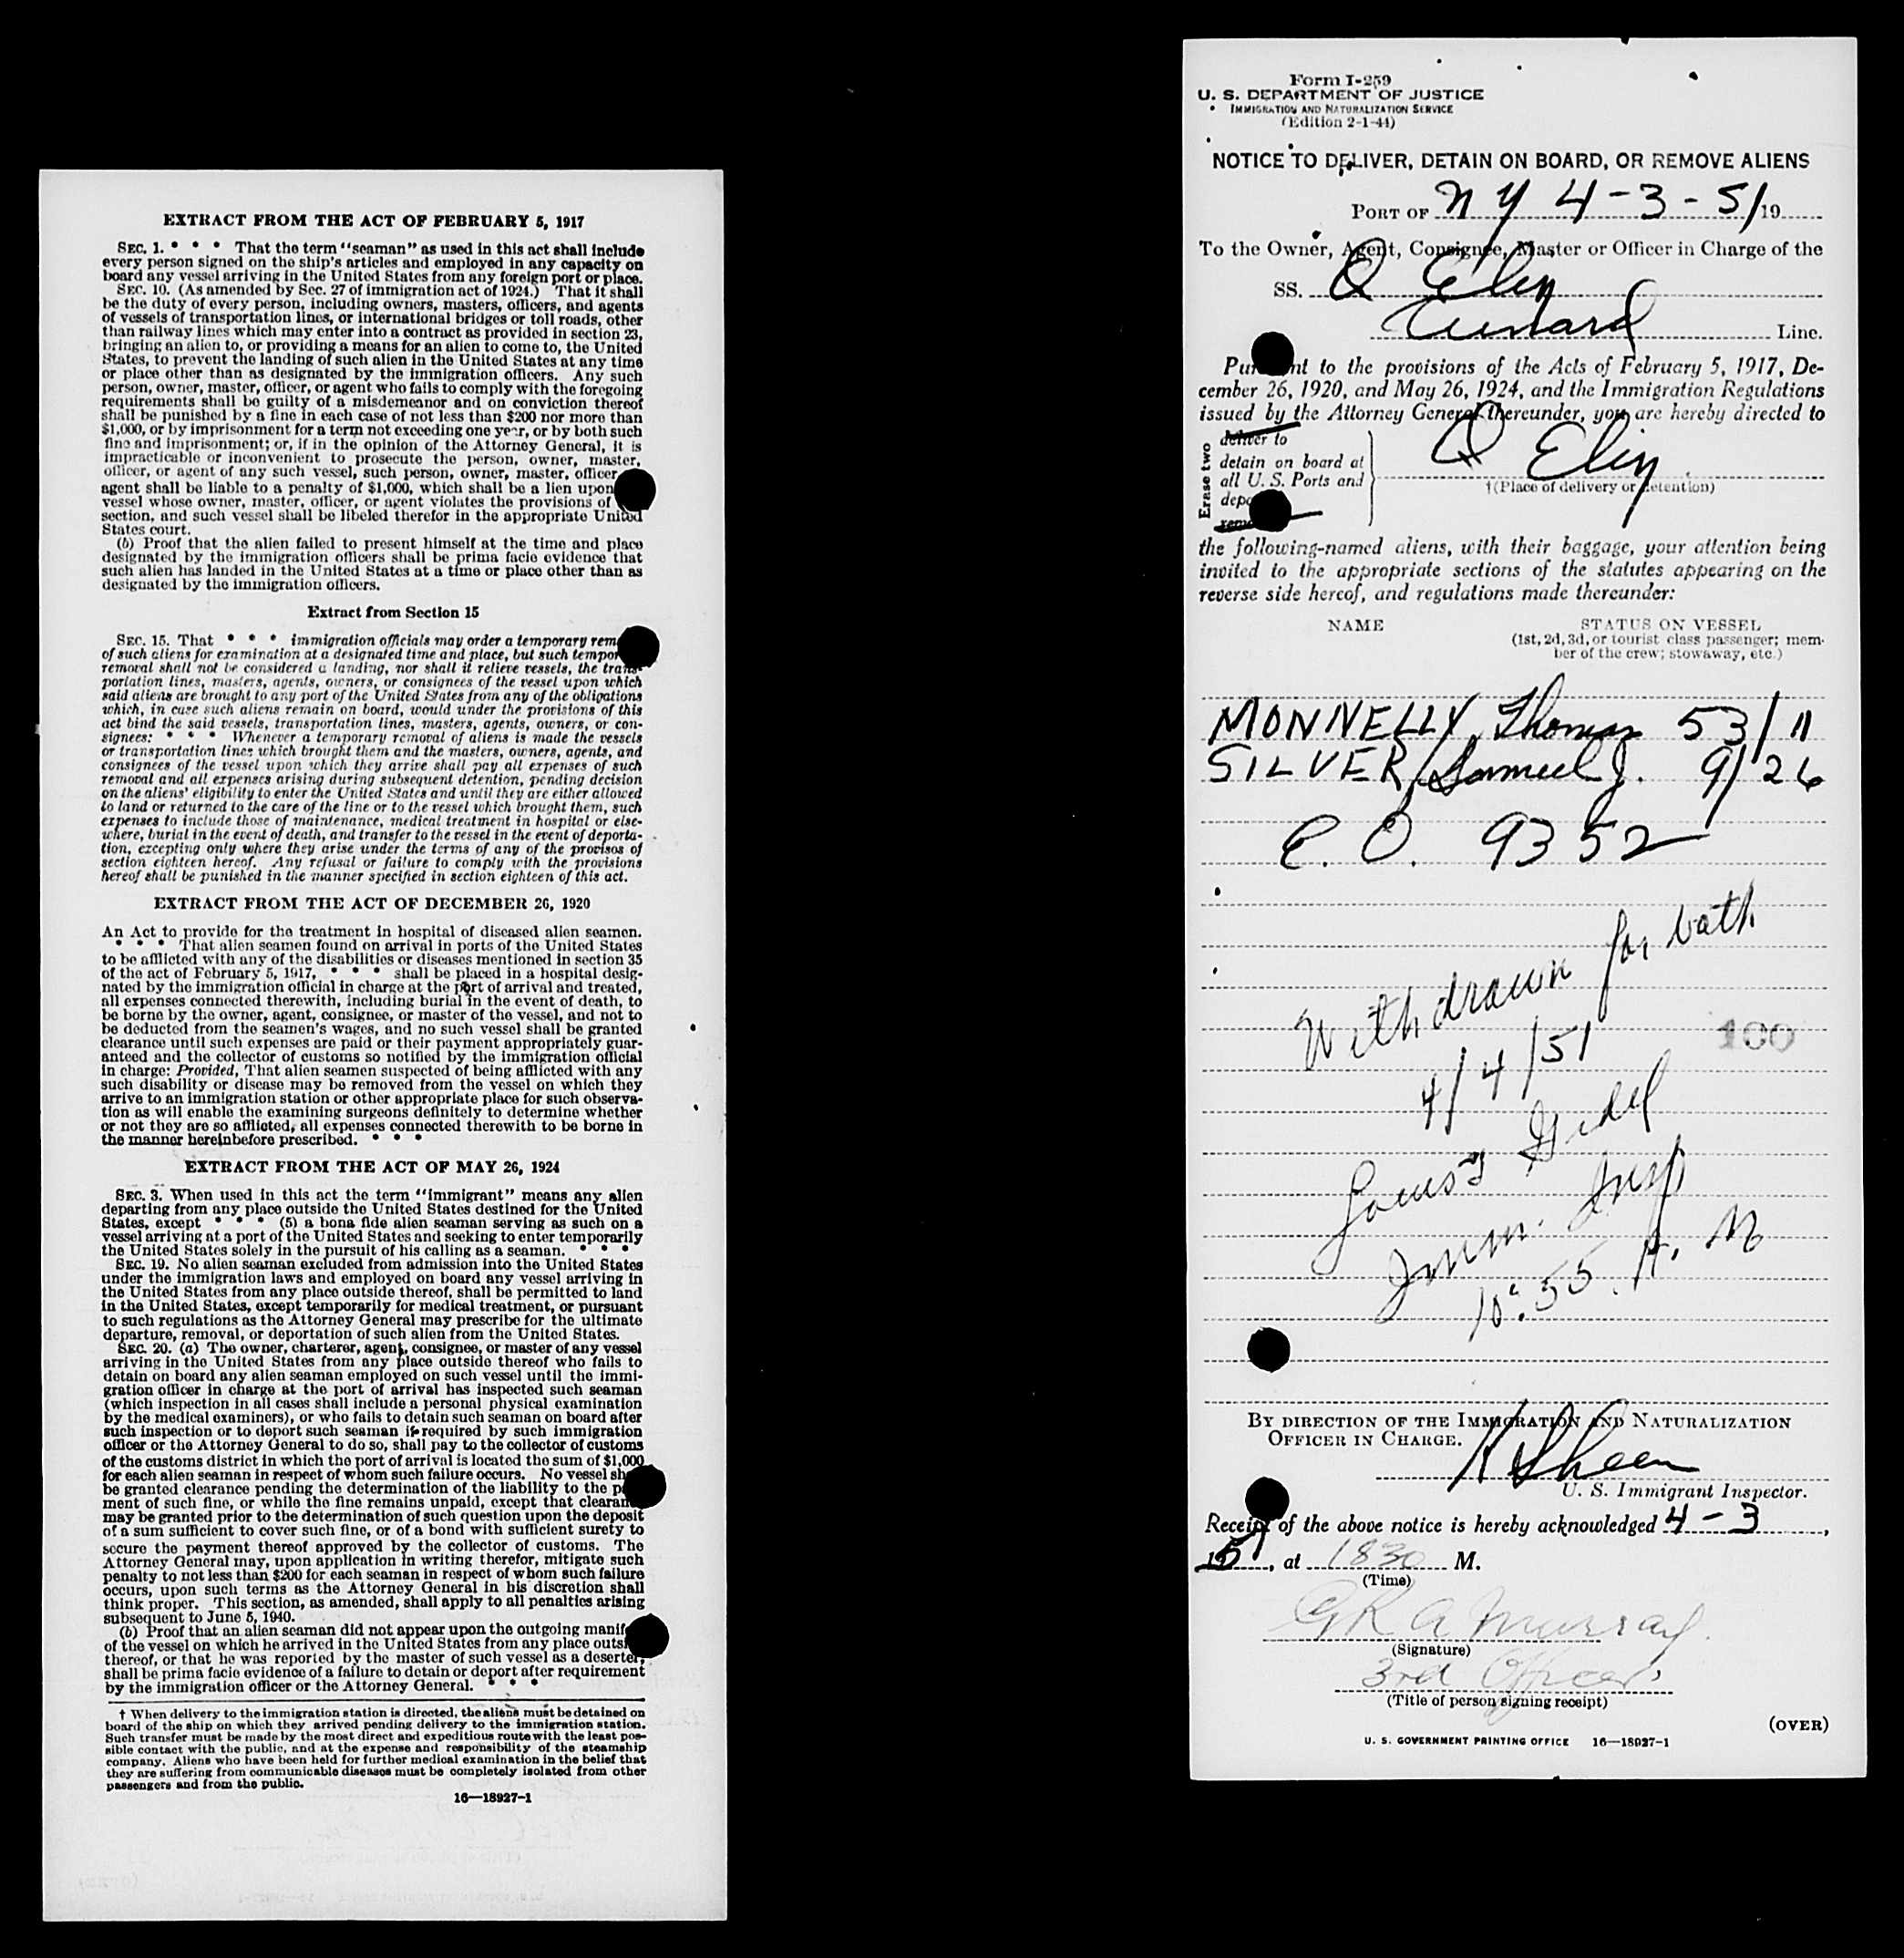 EXTRACT FROM THE ACT OF FEBRUARY 5, 1917
SEC. 1. * * * That the term "seaman" as used in this act shall include
every person signed on the ship's articles and employed in any capacity on
board any vessel arriving in the United States from any foreign port or place.
SEC. 10. (As amended by Sec. 27 of immigration act of 1924.) That it shall
be the duty of every person, including owners, masters, officers, and agents
of vessels of transportation lines, or international bridges or toll roads, other
than railway lines which may enter into a contract as provided in section 23,
bringing an alien to, or providing a means for an alien to come to, the United
States, to prevent the landing of such alien in the United States at any time
or place other than as designated by the immigration officers. Any such
person, owner, master, officer, or agent who fails to comply with the foregoing
requirements shall be guilty of a misdemeanor and on conviction thereof
shall be punished by a fine in each case of not less than $200 nor more than
$1,000, or by imprisonment for a term not exceeding one year, or by both such
fine and imprisonment; or, if in the opinion of the Attorney General, it is
impracticable or inconvenient to prosecute the person, owner, master,
officer, or agent of any such vessel, such person, owner, master, officer
agent shall be liable to a penalty of $1,000, which shall be a lien upon
vessel whose owner, master, officer, or agent violates the provisions of
section, and such vessel shall be libeled therefor in the appropriate United
States court.
(b) Proof that the alien failed to present himself at the time and place
designated by the immigration officers shall be prima facie evidence that
such alien has landed in the United States at a time or place other than as
designated by the immigration officers.
Extract from Section 15
SEC. 15. That * * * immigration officials may order a temporary rem
of such aliens for examination at a designated time and place, but such tempor
removal shall not be considered a landing, nor shall it relieve vessels, the trans-
portation lines, masters, agents, owners, or consignees of the vessel upon which
said aliens are brought to any port of the United States from any of the obligations
which, in case such aliens remain on board, would under the provisions of this
act bind the said vessels, transportation lines, masters, agents, owners, or con-
signees: * * * Whenever a temporary removal of aliens is made the vessels
or transportation lines which brought them and the masters, owners, agents, and
consignees of the vessel upon which they arrive shall pay all expenses of such
removal and all expenses arising during subsequent detention, pending decision
on the aliens' eligibility to enter the United States and until they are either allowed
to land or returned to the care of the line or to the vessel which brought them, such
expenses to include those of maintenance, medical treatment in hospital or else-
where, burial in the event of death, and transfer to the vessel in the event of deporta-
tion, excepting only where they arise under the terms of any of the provisos of
section eighteen hereof. Any refusal or failure to comply with the provisions
hereof shall be punished in the manner specified in section eighteen of this act.
EXTRACT FROM THE ACT OF DECEMBER 26, 1920
An Act to provide for the treatment in hospital of diseased alien seamen.
* * * That alien seamen found on arrival in ports of the United States
to be afflicted with any of the disabilities or diseases mentioned in section 35
of the act of February 5, 1917, * * * shall be placed in a hospital desig-
nated by the immigration official in charge at the port of arrival and treated,
all expenses connected therewith, including burial in the event of death, to
be borne by the owner, agent, consignee, or master of the vessel, and not to
be deducted from the seamen's wages, and no such vessel shall be granted
clearance until such expenses are paid or their payment appropriately guar-
anteed and the collector of customs so notified by the immigration official
in charge: Provided, That alien seamen suspected of being afflicted with any
such disability or disease may be removed from the vessel on which they
arrive to an immigration station or other appropriate place for such observa-
tion as will enable the examining surgeons definitely to determine whether
or not they are so afflicted, all expenses connected therewith to be borne in
the manner hereinbefore prescribed. * * *
EXTRACT FROM THE ACT OF MAY 26, 1924
SEC. 3. When used in this act the term "immigrant" means any alien
departing from any place outside the United States destined for the United
States, except * * * (5) a bona fide alien seaman serving as such on a
vessel arriving at a port of the United States and seeking to enter temporarily
the United States solely in the pursuit of his calling as a seaman. * * *
SEC. 19. No alien seaman excluded from admission into the United States
under the immigration laws and employed on board any vessel arriving in
the United States from any place outside thereof, shall be permitted to land
in the United States, except temporarily for medical treatment, or pursuant
to such regulations as the Attorney General may prescribe for the ultimate
departure, removal, or deportation of such alien from the United States.
SEC. 20. (a) The owner, charterer, agent, consignee, or master of any vessel
arriving in the United States from any place outside thereof who fails to
detain on board any alien seaman employed on such vessel until the immi-
gration officer in charge at the port of arrival has inspected such seaman
(which inspection in all cases shall include a personal physical examination
by the medical examiners), or who fails to detain such seaman on board after
such inspection or to deport such seaman if required by such immigration
officer or the Attorney General to do so, shall pay to the collector of customs
of the customs district in which the port of arrival is located the sum of $1,000
for each alien seaman in respect of whom such failure occurs. No vessel sh
be granted clearance pending the determination of the liability to the p
ment of such fine, or while the fine remains unpaid, except that clearan
may be granted prior to the determination of such question upon the deposit
of a sum sufficient to cover such fine, or of a bond with sufficient surety to
secure the payment thereof approved by the collector of customs. The
Attorney General may, upon application in writing therefor, mitigate such
penalty to not less than $200 for each seaman in respect of whom such failure
occurs, upon such terms as the Attorney General in his discretion shall
think proper. This section, as amended, shall apply to all penalties arising
subsequent to June 5, 1940.
(b) Proof that an alien seaman did not appear upon the outgoing manif
of the vessel on which he arrived in the United States from any place outsi
thereof, or that he was reported by the master of such vessel as a deserter,
shall be prima facie evidence of a failure to detain or deport after requirement
by the immigration officer or the Attorney General. * * *
† When delivery to the immigration station is directed, the aliens must be detained on
board of the ship on which they arrived pending delivery to the immigration station.
Such transfer must be made by the most direct and expeditious route with the least pos-
sible contact with the public, and at the expense and responsibility of the steamship
company. Aliens who have been held for further medical examination in the belief that
they are suffering from communicable diseases must be completely isolated from other
passengers and from the public.
16—18927-1
Form I-259
U. S. DEPARTMENT OF JUSTICE
IMMIGRATION AND NATURALIZATION SERVICE
(Edition 2-1-44)
NOTICE TO DELIVER, DETAIN ON BOARD, OR REMOVE ALIENS
PORT OF N Y 4-3-51 19
To the Owner, Agent, Consignee, Master or Officer in Charge of the
SS. Q Eliz
Cunard Line.
Pur nt to the provisions of the Acts of February 5, 1917, De-
cember 26, 1920, and May 26, 1924, and the Immigration Regulations
issued by the Attorney General thereunder, you are hereby directed to
Erase two
deliver to
detain on board at
all U. S. Ports and
depo
remo
Q Eliz
†(Place of delivery or detention)
the following-named aliens, with their baggage, your attention being
invited to the appropriate sections of the statutes appearing on the
reverse side hereof, and regulations made thereunder:
NAME STATUS ON VESSEL
(1st, 2d, 3d, or tourist class passenger; mem-
ber of the crew; stowaway, etc.)
MONNELLY, Thomas 53/11
SILVER, Samuel J. 9/26
E. O. 9352
Withdrawn for both
100
4/4/51
Imm. Insp
10:55 A. M
BY DIRECTION OF THE IMMIGRATION AND NATURALIZATION
OFFICER IN CHARGE.
U. S. Immigrant Inspector.
Receipt of the above notice is hereby acknowledged 4-3,
1951, at 1830 M.
(Time)
G R A Murray.
(Signature)
3rd Officer
(Title of person signing receipt)
(OVER)
U. S. GOVERNMENT PRINTING OFFICE 16—18927-1